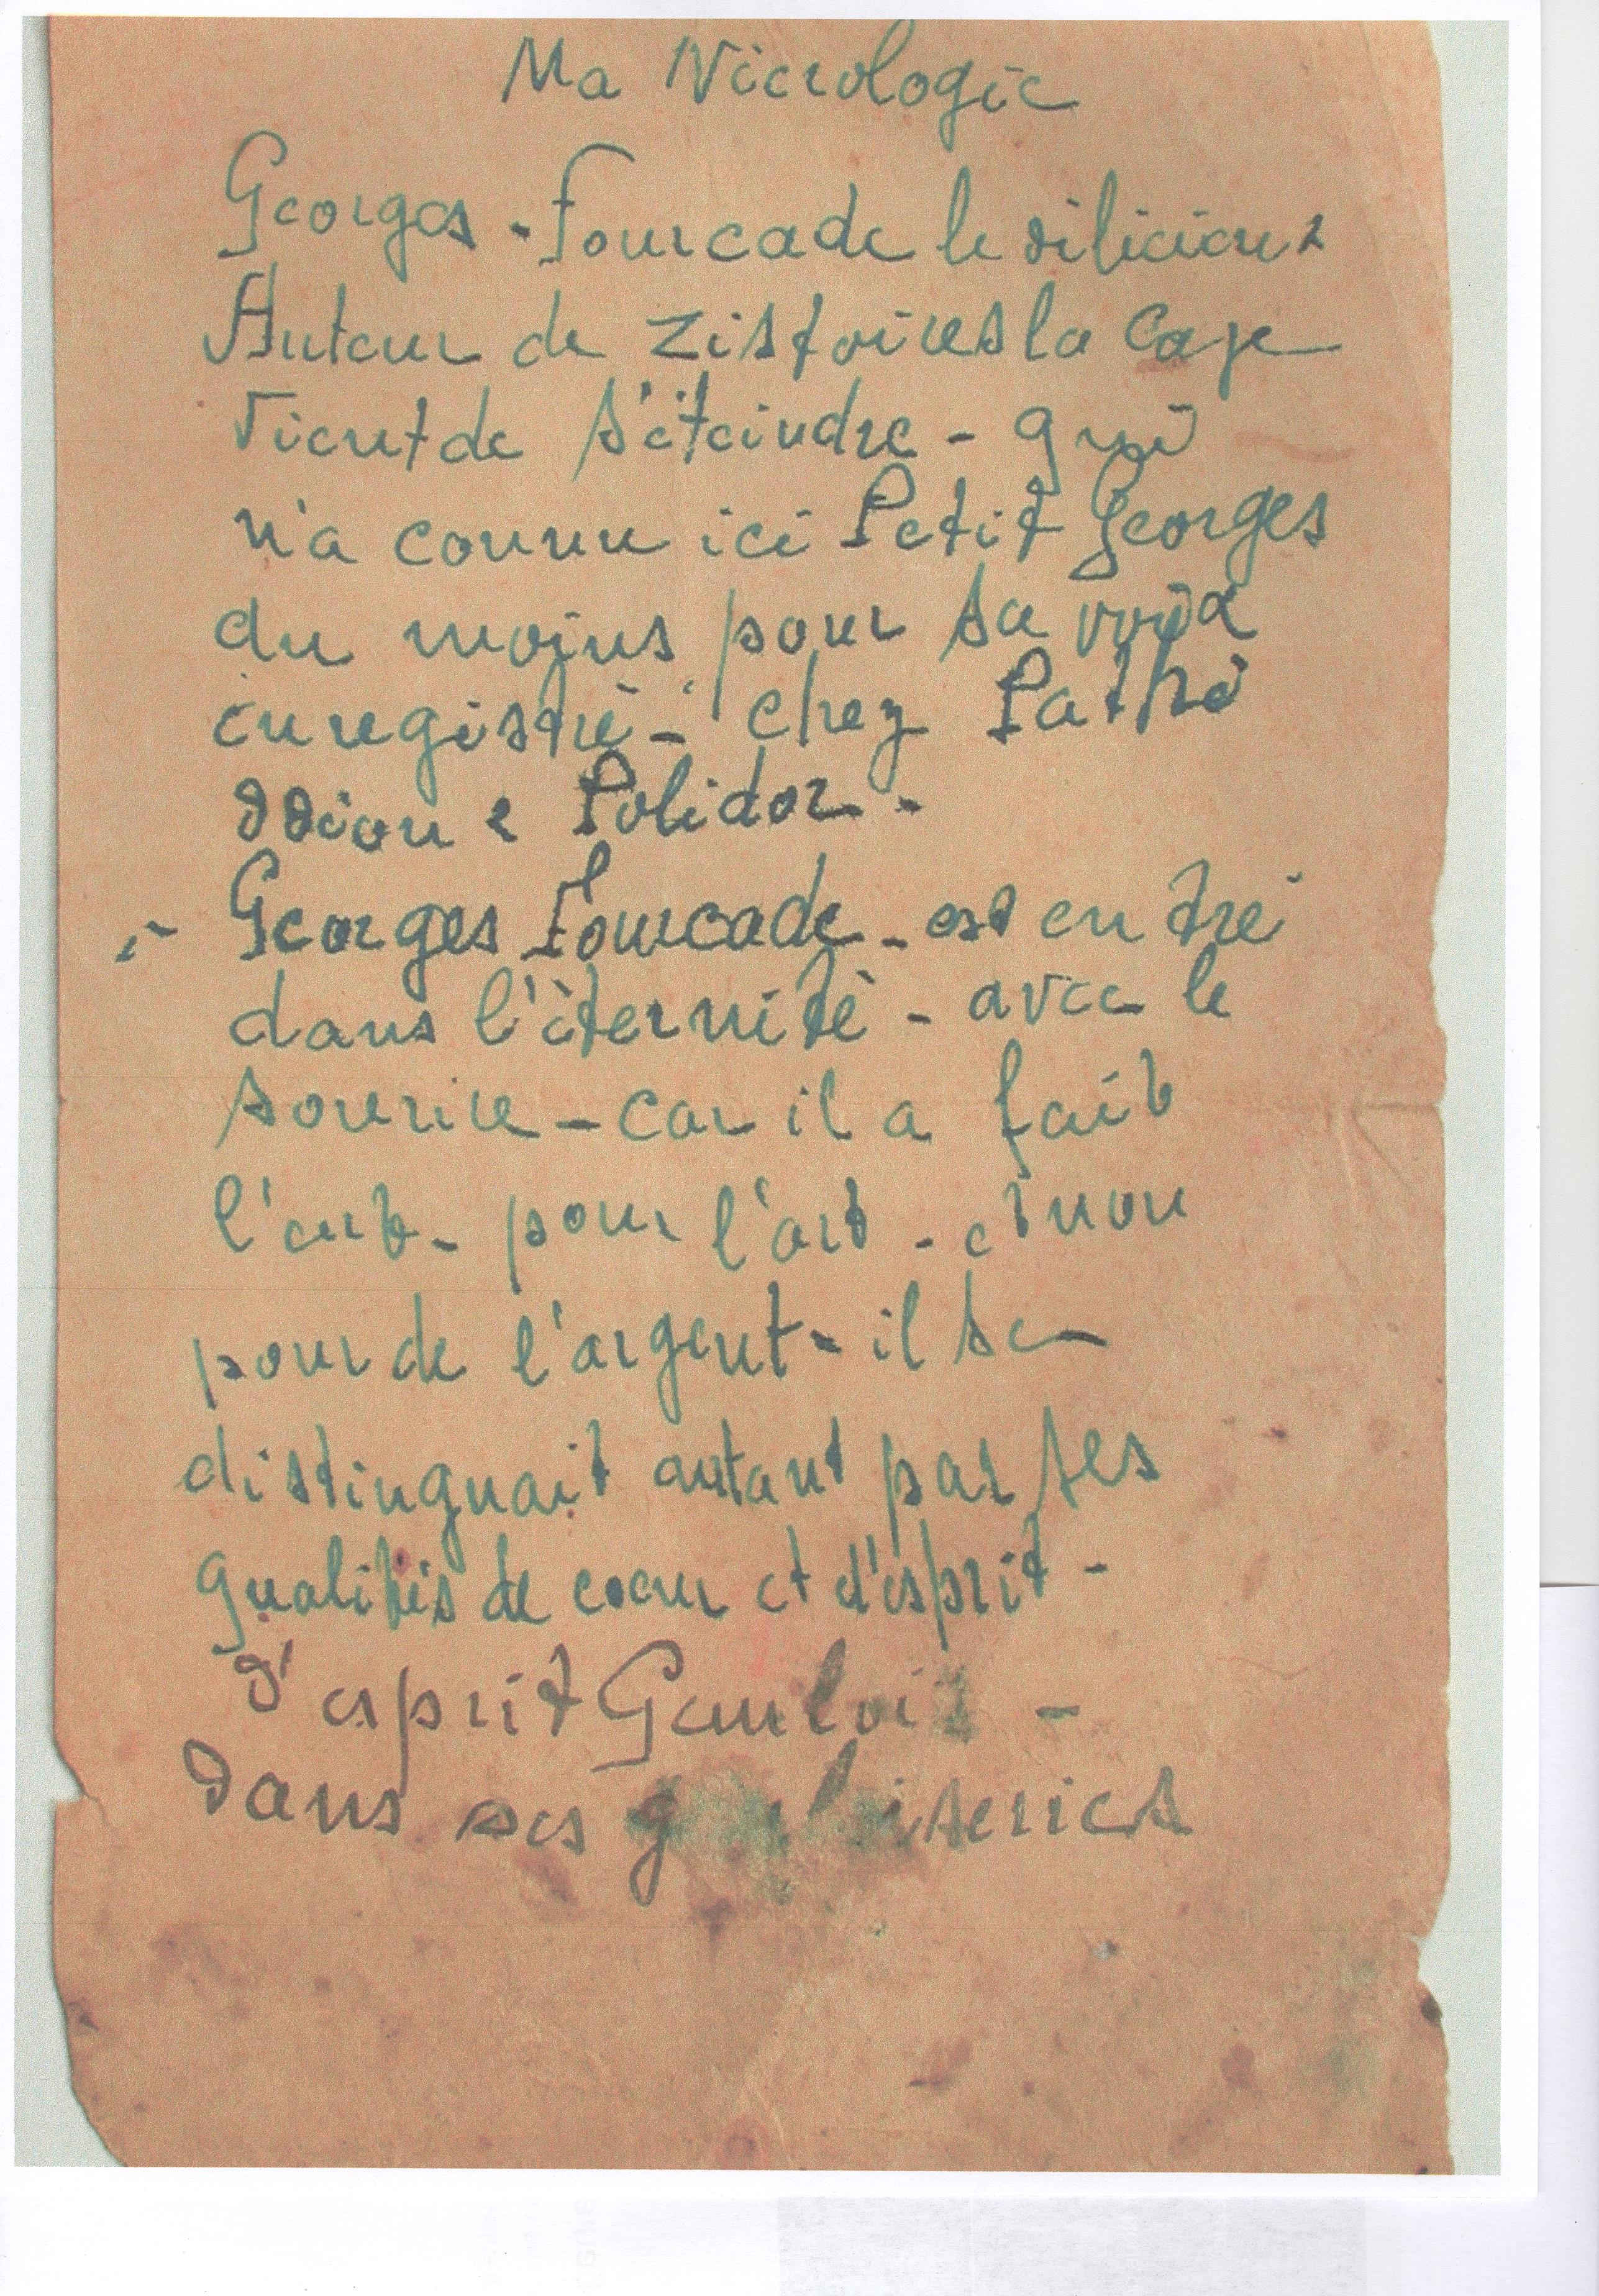 Ma Nécrologie
Georges - Fourcade le délicieux
Auteur de Zistoires la caze
Vient de s'éteindre - qui
n'a connu ici Petit Georges
du moins pour sa voix
enregistré - chez Pathé
Odéon & Polidor -
Georges Fourcade - est entré
dans l'éternité - avec le
sourire - car il a fait
l'art - pour l'art - et non
pour de l'argent - il se
distinguait autant par ses
qualités de coeur et d'esprit -
d'esprit Gaulois -
Dans ses gauloiseries